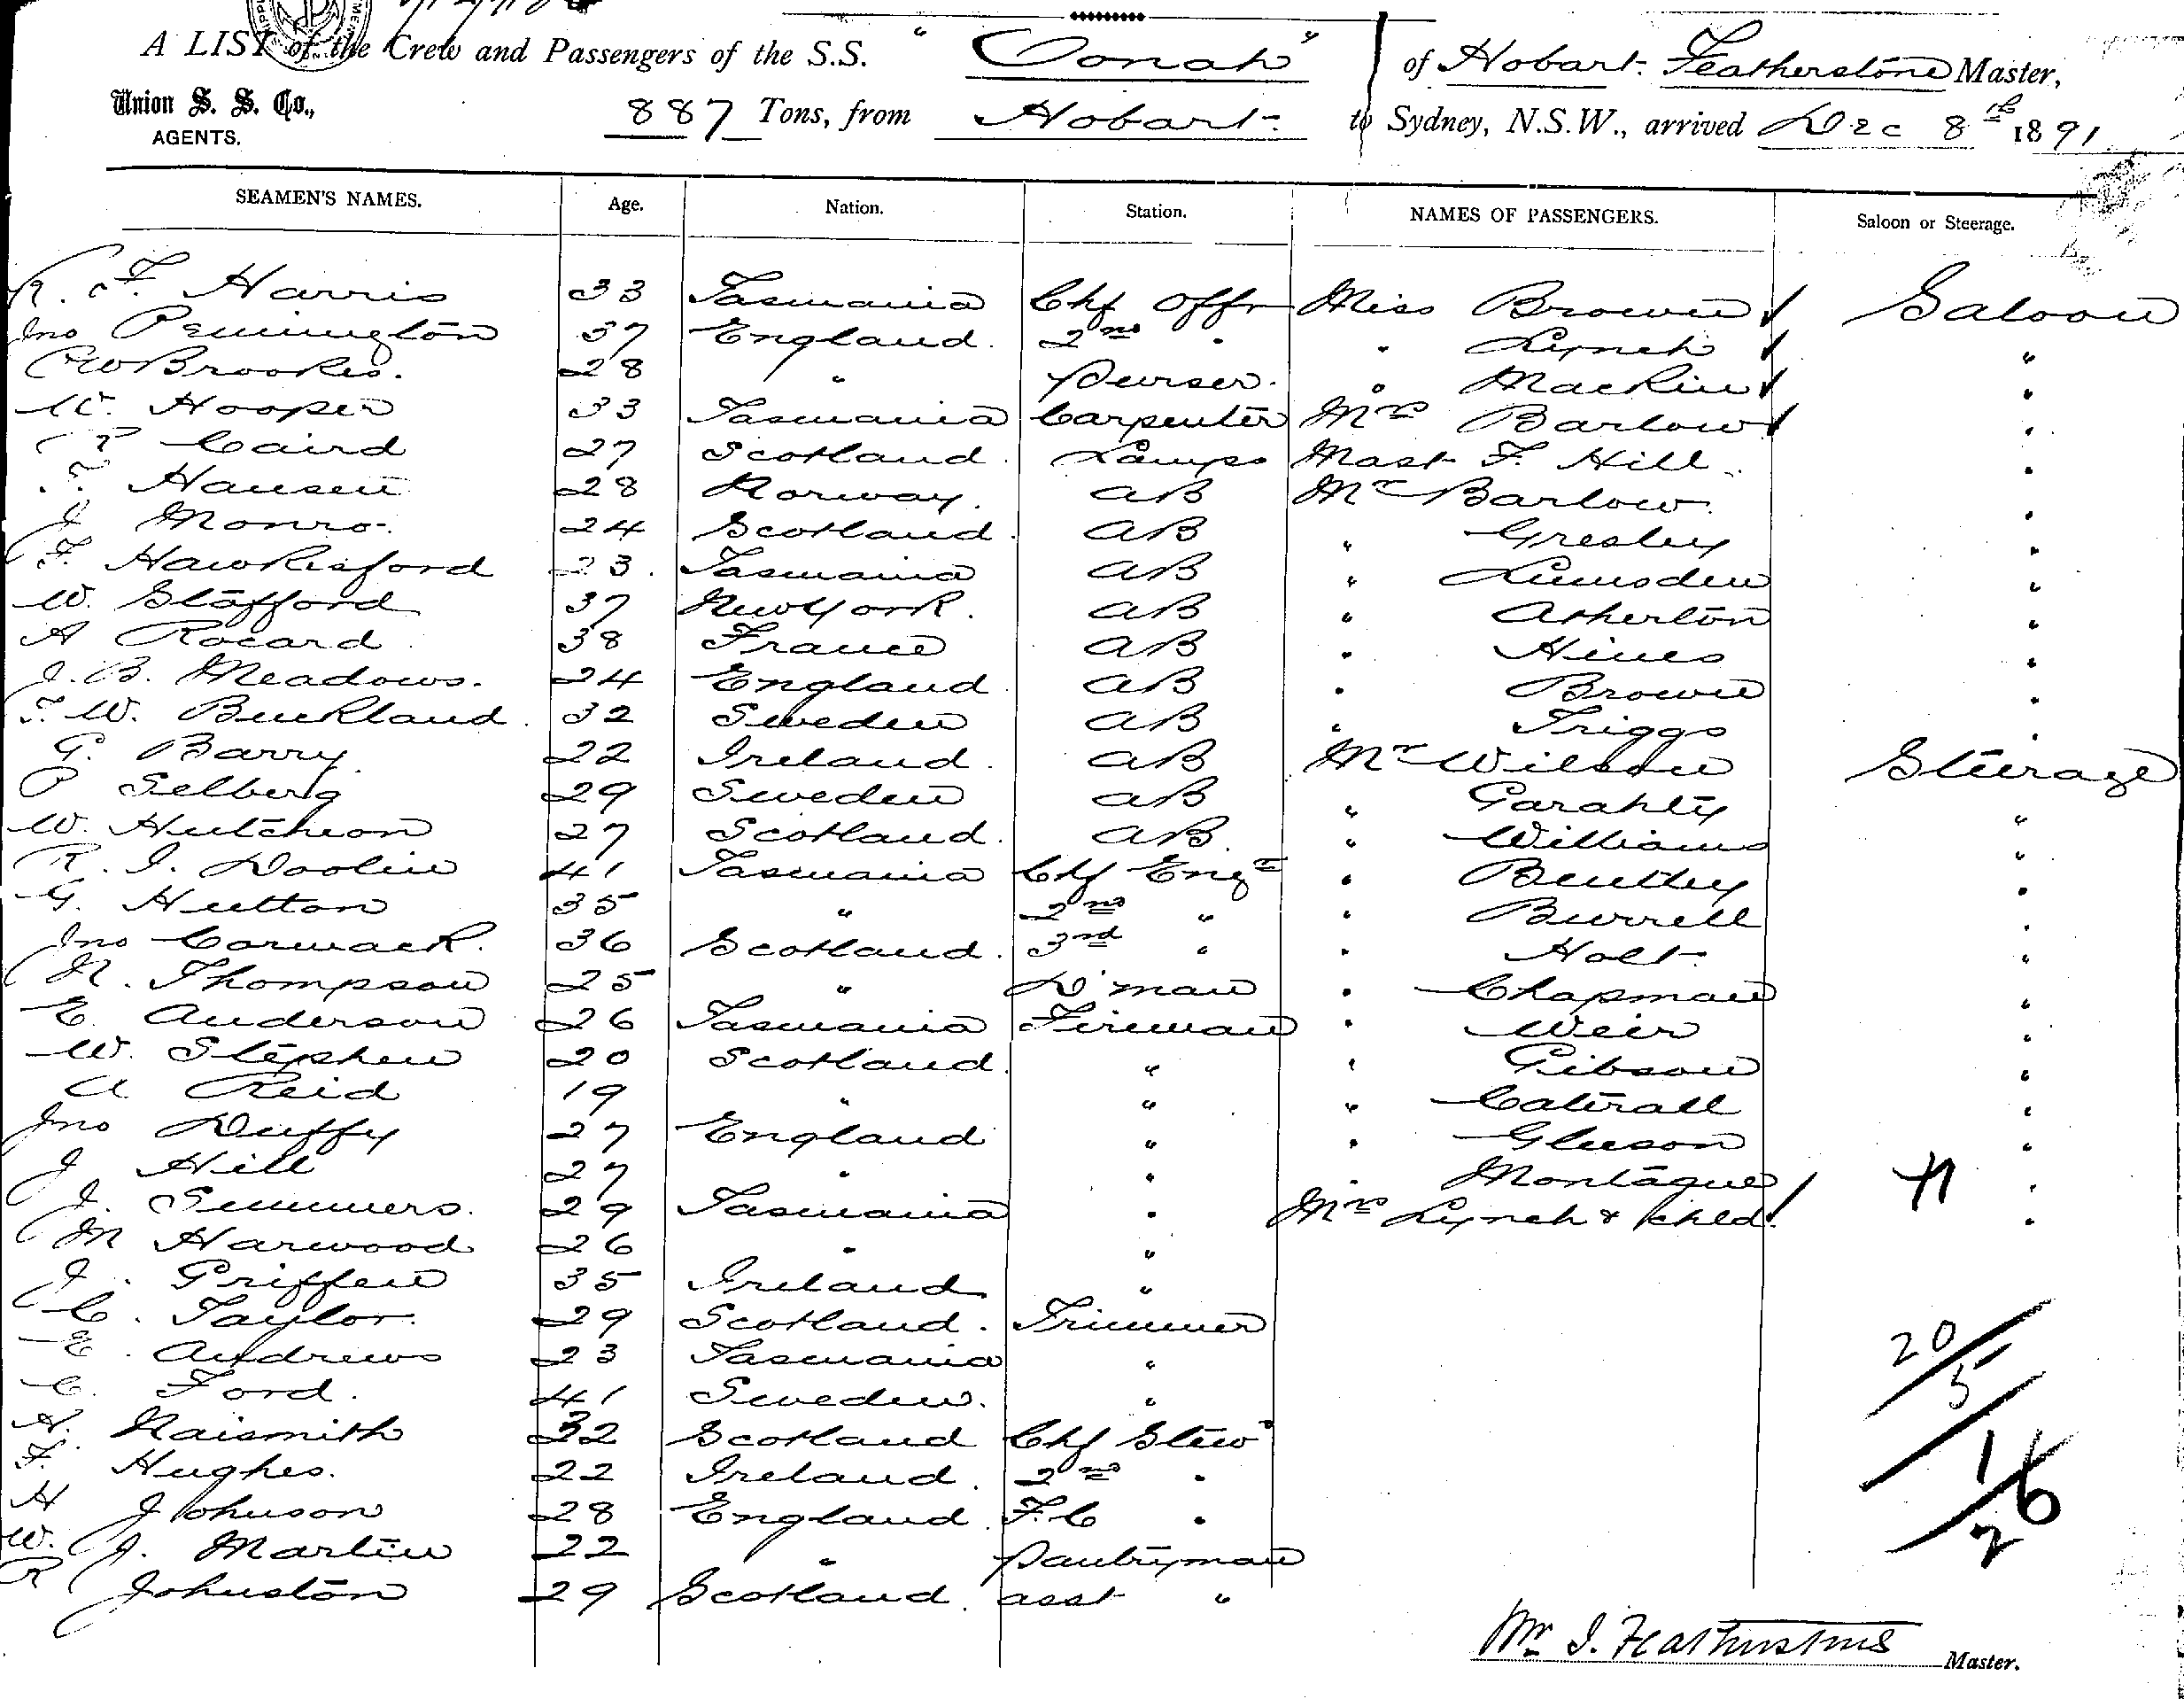 A LIST of the Crew and Passengers of the S.S. " Oonah " of Hobart. Featherstone Master,
Union S. S. Co., 887 Tons, from Hobart to Sydney, N.S.W., arrived Dec 8th 1891
AGENTS.
SEAMEN'S NAMES. Age. Nation. Station. NAMES OF PASSENGERS. Saloon or Steerage.
R. F. Harris 33 Tasmania Chf Offr Miss Brown Saloon
Jno Pennington 37 England. 2nd " " Lynch "
RW Brookes. 28 " Purser. " Mackin "
W. Hooper 33 Tasmania Carpenter Mrs Barlow "
P Caird 27 Scotland. Lamps Mast F. Hill "
T. Hansen 28 Norway. AB Mr Barlow. "
J Monro. 24 Scotland. AB " Gresley "
F. Hawkesford 23. Tasmania AB " Lumsden "
W. Stafford 37 New York. AB " Atherton "
A Rocard 38 France AB " Hines "
J. B. Meadows. 24 England. AB " Brown "
T. W. Buckland. 32 Sweden AB " Triggs "
G. Barry. 22 Ireland. AB Mr Wilson Steerage
P Selberg 29 Sweden AB " Garahty "
W. Hutcheon 27 Scotland. AB. " Williams "
R. I. Doolin 41 Tasmania Chf Engr " Bentley "
G. Hutton 35 " 2nd " " Burrell "
Jno Cormack. 36 Scotland. 3rd " " Holt "
N. Thompson 25 " D'man " Chapman "
E. Anderson 26 Tasmania Fireman " Weir "
W. Stephen 20 Scotland. " " Gibson "
A Reid 19 " " " Caterall "
Jno Duffy 27 England " " Gleeson "
J Hill 27 " " " Montague "
J. Summers. 29 Tasmania " Mrs Lynch & child. "
M Harwood 26 " "
J. Griffen 35 Ireland "
C. Taylor. 29 Scotland. Trimmer
E. Andrews 23 Tasmania " 20
C. Ford. 41 Sweden. " 5
N. Naismith 32 Scotland Chf Stewd
F. Hughes. 22 Ireland. 2nd " 16
H Johnson 28 England. F.C " 2
W. J. Martin 22 " Pantryman
R Johnston 29 Scotland. asst "
Wm J. Featherstone Master.